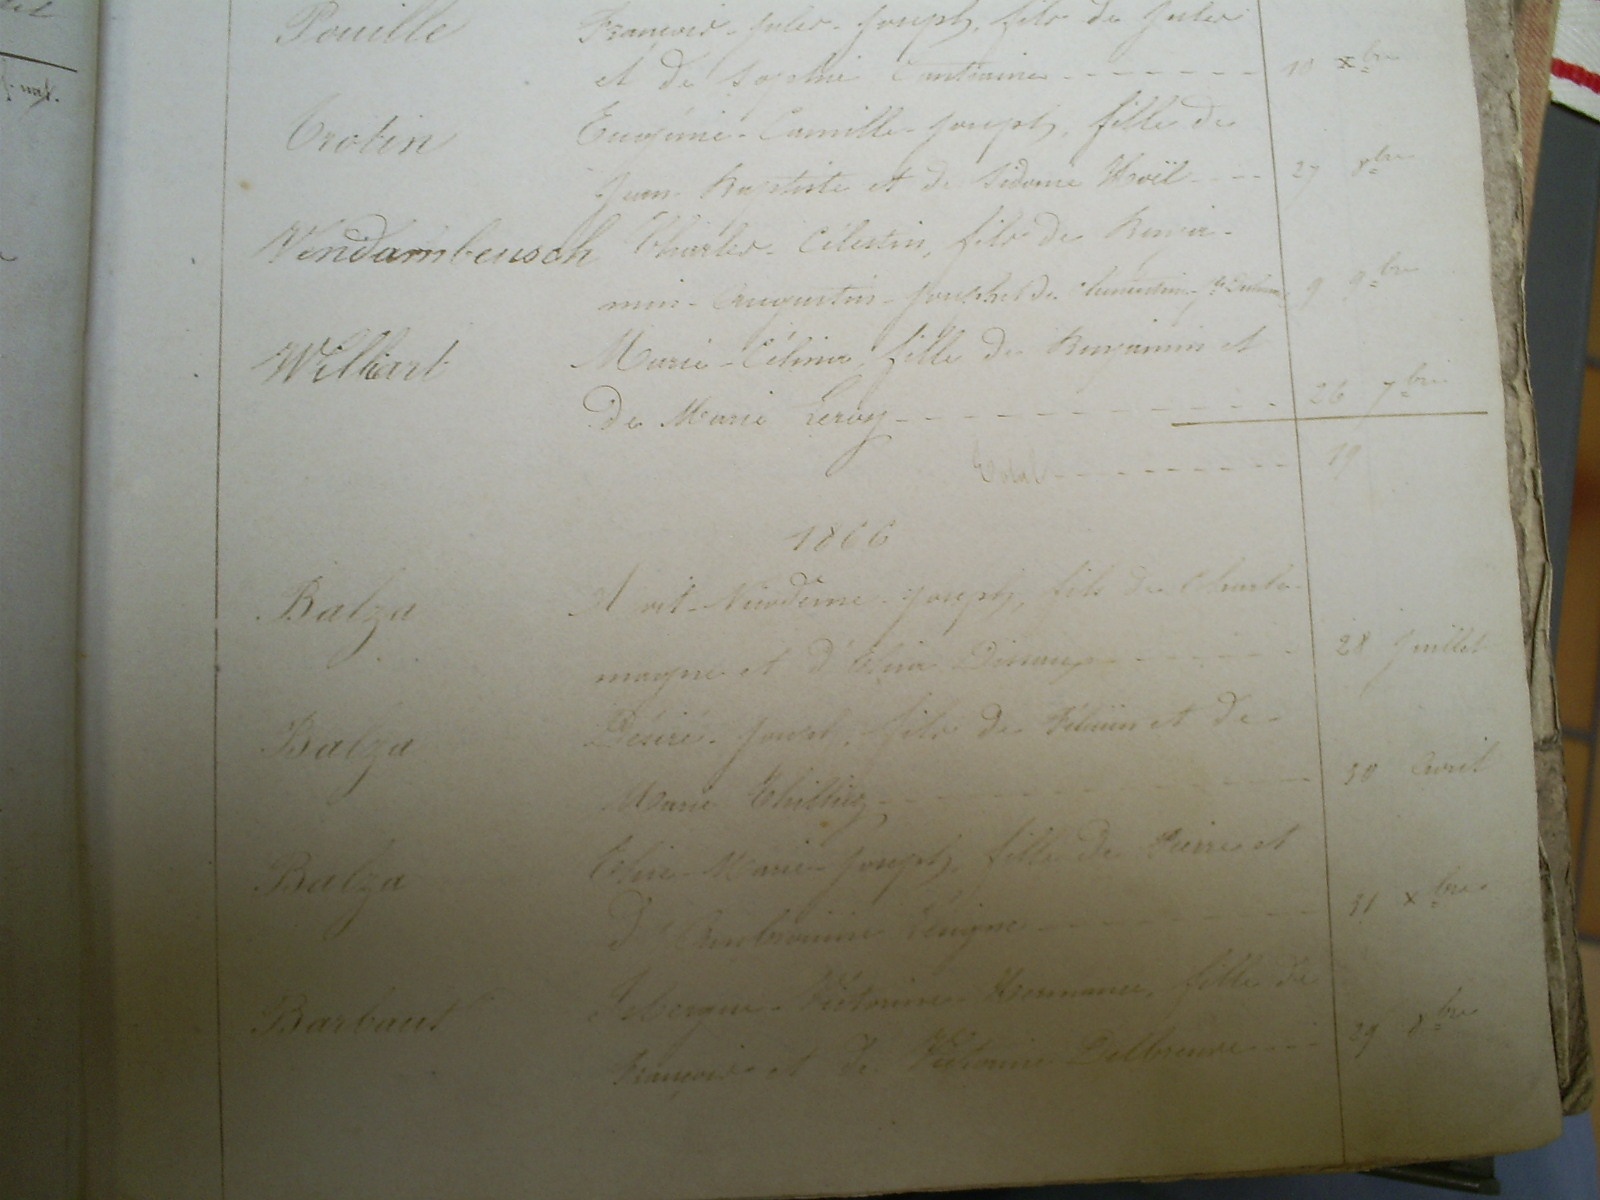 Pouille François-Jules-Joseph, fils de Jules
et de Sophie Cantraine 10 Xbre
Trotin Eugénie-Camille-Joseph, fille de
Jean-Baptiste et de Sidonie Hoël 27 8bre
Vendambeusch Charles-Célestin, fils de Benja-
min-Augustin-Joseph et de Clémentine 9 9bre
Williart Marie-Célina, fille de Benjamin et
de Marie Leroy 26 7bre
Total 19
1866
Balza Avit-Nicodème-Joseph, fils de Charle-
magne et d' 28 Juillet
Balza Désiré-Joseph, fils de Félicien et de
Marie 30 Avril
Balza Marie-Joseph, fille de Pierre et
d'Ambroisine 31 Xbre
Barbaut Victorine-Hermance, fille de
François et de Victorine 29 8bre